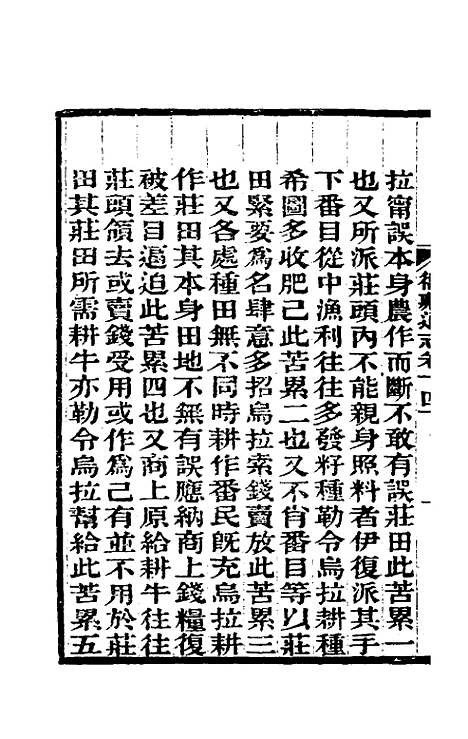 拉甯誤本身農作而斷不敢有誤莊田此苦累一
也又所派莊頭內不能親身照料者伊復派其手
下番目從中漁利往往多發籽種勒令烏拉耕種
希圖多收肥己此苦累二也又不肖番目等以莊
田緊要爲名肆意多招烏拉索錢賣放此苦累三
也又各處種田無不同時耕作番民旣充烏拉耕
作莊田其本身田地不無有誤應納商上錢糧復
被差目逼迫此苦累四也又商上原給耕牛往往
莊頭領去或賣錢受用或作爲己有並不用於莊
田其莊田所需耕牛亦勒令烏拉幫給此苦累五